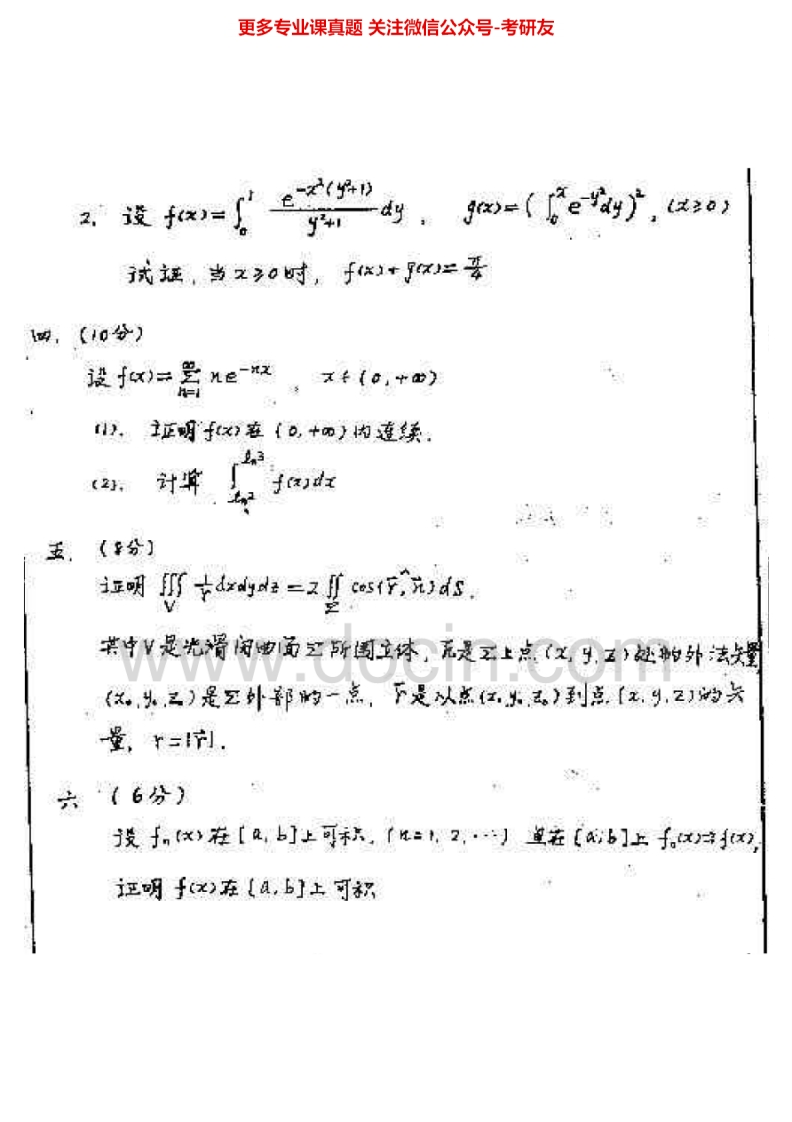 更多专业课真题 关注微信公众号-考研友
2. 设 f(x)=∫₀¹ e^{-x²(y²+1)}/(y²+1) dy, g(x)=(∫₀ˣ e^{-y²}dy)², (x≥0)
试证, 当 x≥0时, f(x)+g(x)=π/4
四. (10分)
设 f(x)=∑_{n=1}^{∞} ne^{-nx}, x∈(0,+∞)
(1). 证明 f(x)在(0,+∞)内连续.
(2). 计算 ∫_{ln2}^{ln3} f(x)dx
五. (8分)
证明 ∭_V 1/r dxdydz = 2∬_Σ cos(r⃗,^n⃗)dS.
其中V是光滑闭曲面Σ所围立体, n⃗是Σ上点(x,y,z)处的外法矢量
(x₀,y₀,z₀)是Σ外部的一点, r⃗是以点(x₀,y₀,z₀)到点(x,y,z)的矢
量, r=|r⃗|.
www.docin.com
六 (6分)
设 fₙ(x)在[a,b]上可积, (n=1,2,…) 且在[a,b]上 fₙ(x)⇉f(x),
证明 f(x)在[a,b]上可积